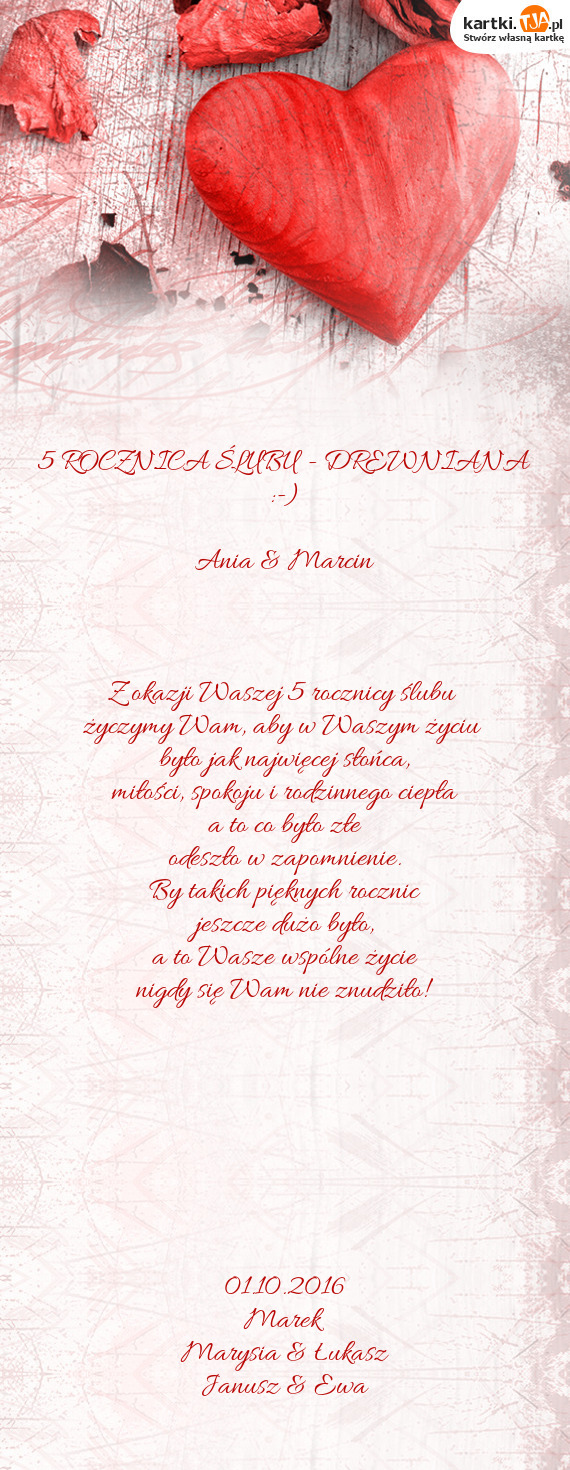 kartki.TJA.pl
Stwórz własną kartkę
5 ROCZNICA ŚLUBU - DREWNIANA
:-)
Ania & Marcin
Z okazji Waszej 5 rocznicy ślubu
życzymy Wam, aby w Waszym życiu
było jak najwięcej słońca,
miłości, spokoju i rodzinnego ciepła
a to co było złe
odeszło w zapomnienie.
By takich pięknych rocznic
jeszcze dużo było,
a to Wasze wspólne życie
nigdy się Wam nie znudziło!
01.10.2016
Marek
Marysia & Łukasz
Janusz & Ewa